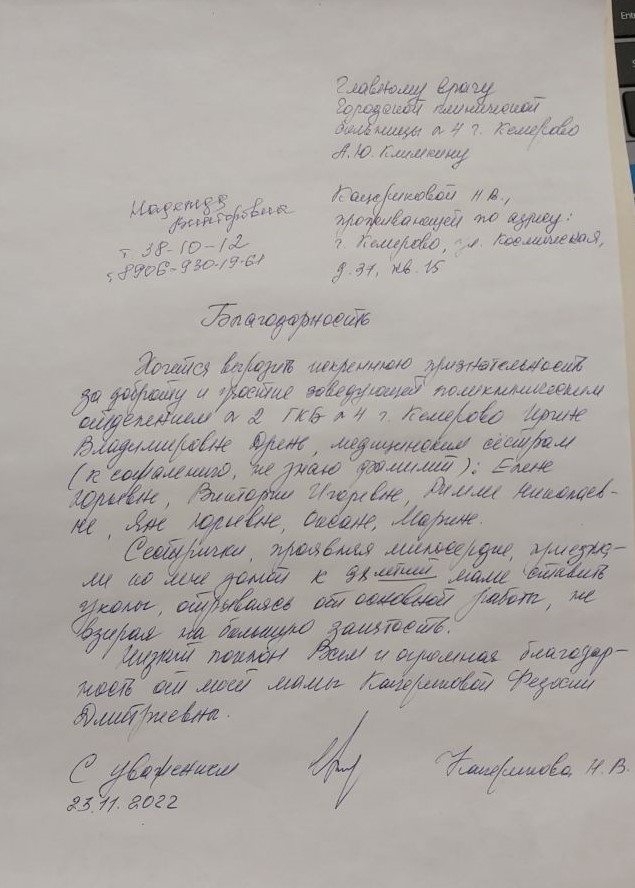 Главному врачу
Городской клинической
больницы № 4 г. Кемерово
А.Ю. Климкину
Надежда
Викторовна
т 38-10-12
с 8906-930-19-61
Кацериковой Н.В.,
проживающей по адресу:
г. Кемерово, ул. Космическая,
д. 37, кв. 15
Благодарность
Хочется выразить искреннюю признательность
за доброту и участие заведующей поликлиническим
отделением № 2 ГКБ № 4 г. Кемерово Ирине
Владимировне Дрень, медицинским сёстрам
(к сожалению, не знаю фамилий): Елене
Юрьевне, Виктории Игоревне, Римме Николаев-
не, Яне Юрьевне, Оксане, Марине.
Сестрички, проявляя милосердие, приезжа-
ли ко мне домой к летней маме ставить
уколы, отрываясь от основной работы, не
взирая на большую занятость.
Низкий поклон Всем и огромная благодар-
ность от моей мамы Кацериковой Федосии
Дмитриевны.
С уважением Кацерикова Н.В.
23.11.2022